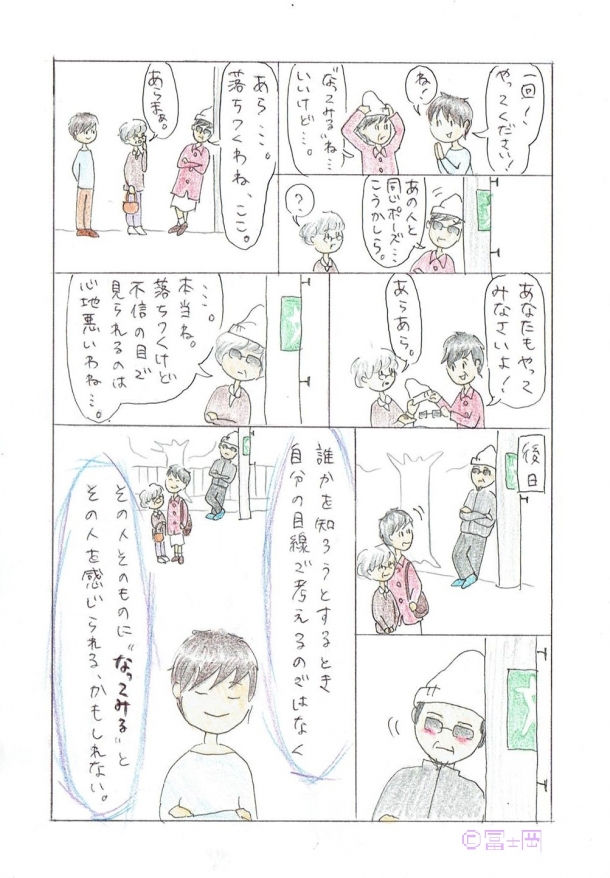 一回！、
やってください！
ね！
“なってみる”ね…
いいけど…。
あら…。
落ちつくわね、ここ。
あらまぁ。
あの人と
同じポーズ…
こうかしら。
？
あなたもやって
みなさいよ！
あらあら。
…。
本当ね。
落ちつくけど
不信の目で
見られるのは
心地悪いわね…。
後日
誰かを知ろうとするとき
自分の目線で考えるのではなく
その人そのものに“なってみる”と
その人を感じられる、かもしれない。
©冨士岡